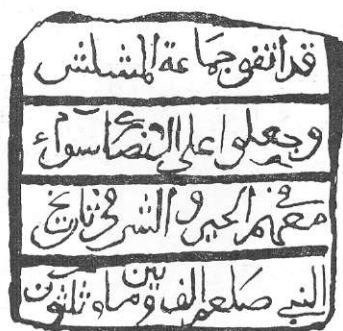 قد اتفو جماعة المشلش
وجعلوا على سوآء
معهم في الخير و الشر في تاريخ
النبي صلعم الف وماتين و ثلثون